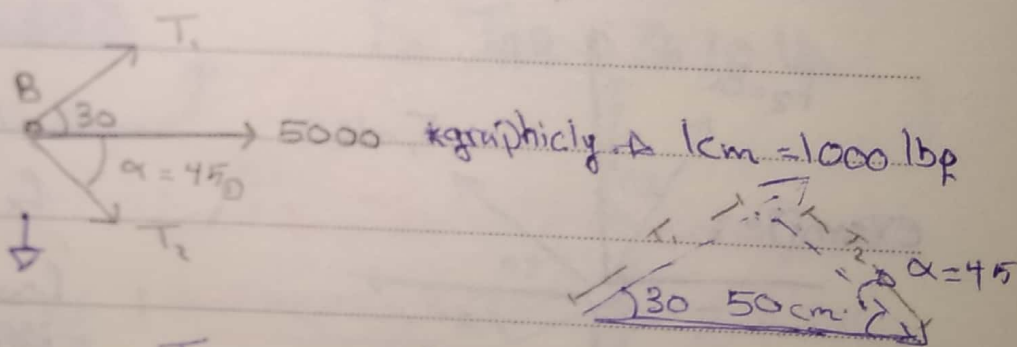 T₁
B
30
5000 *graphicly → 1cm = 1000 lbf
α = 45
T₂
T₁ T₂ α = 45
30 50cm